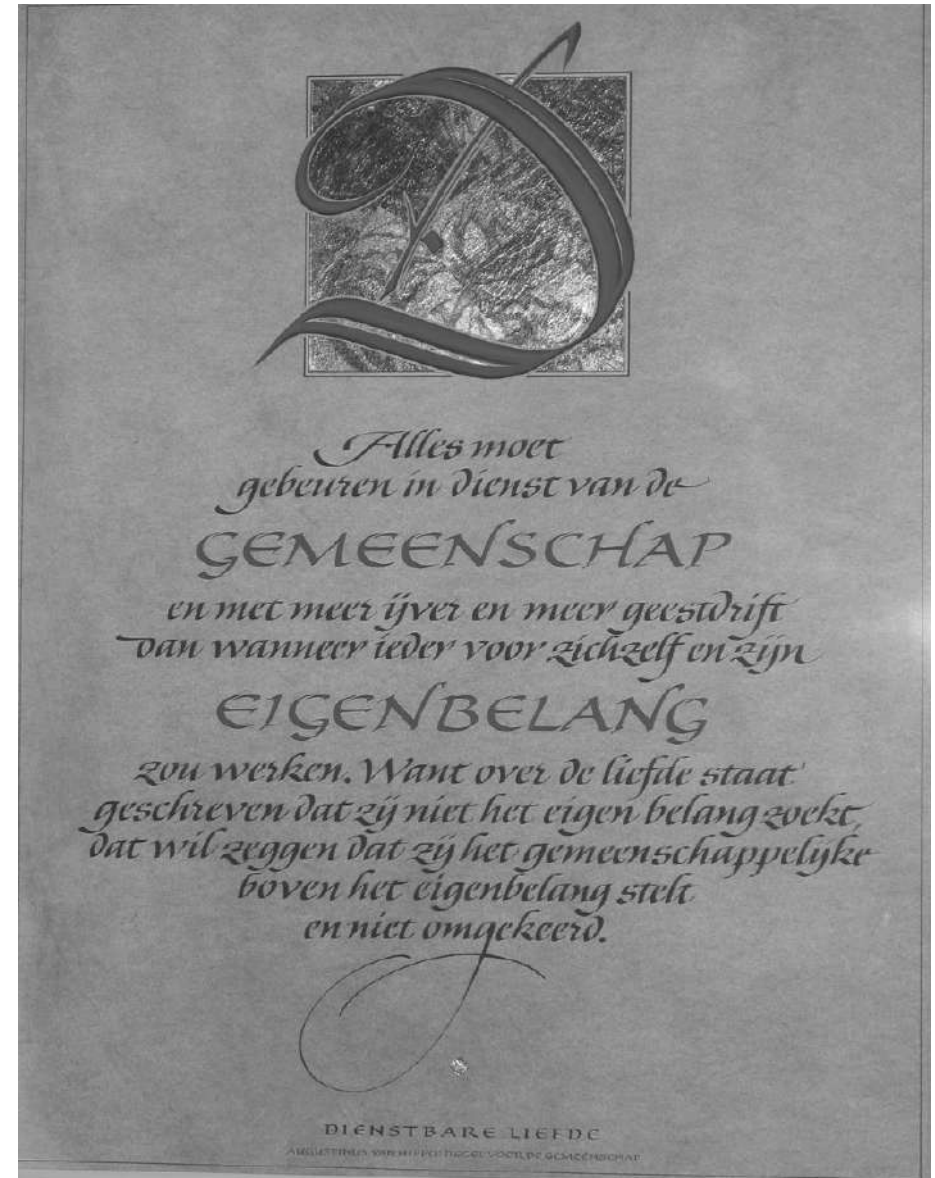 D
Alles moet
gebeuren in dienst van de
GEMEENSCHAP
en met meer ijver en meer geestdrift
dan wanneer ieder voor zichzelf en zijn
EIGENBELANG
zou werken. Want over de liefde staat
geschreven dat zij niet het eigen belang zoekt,
dat wil zeggen dat zij het gemeenschappelijke
boven het eigenbelang stelt
en niet omgekeerd.
DIENSTBARE LIEFDE
AUGUSTINUS VAN HIPPO: REGEL VOOR DE GEMEENSCHAP